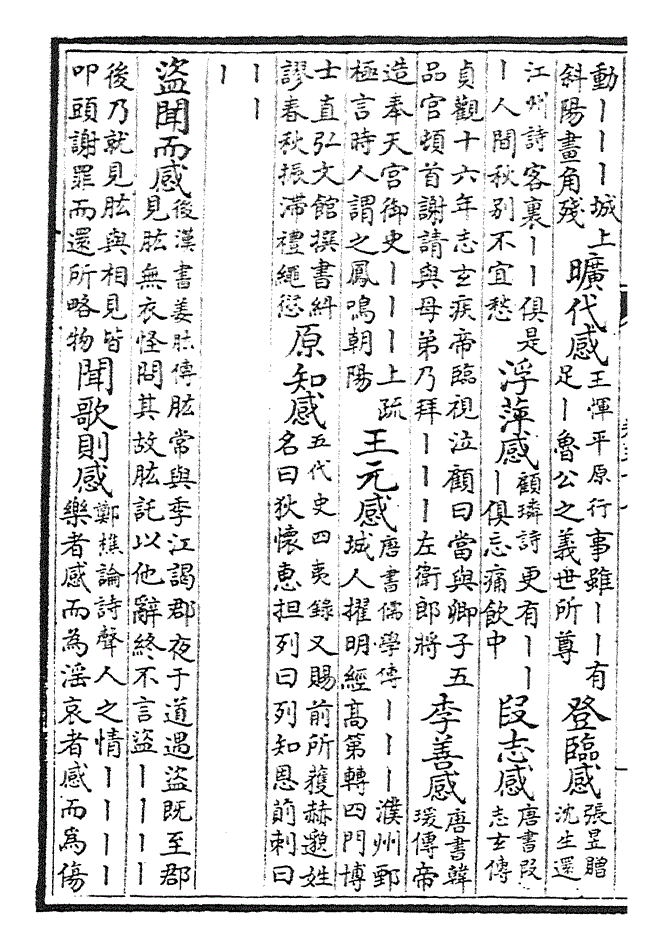 動丨丨丨城上
斜陽畫角殘
曠代感
王惲平原行事雖丨丨有
足丨魯公之義世所尊
登臨感
張昱贈
沈生還
江州詩客裏丨丨俱是
丨人間秋别不宜愁
浮萍感
顧璘詩更有丨丨
丨俱忘痛飲中
段志感
唐書段
志玄傳
貞觀十六年志玄疾帝臨視泣顧曰當與卿子五
品官頓首謝請與母弟乃拜丨丨丨左衛郎將
李善感
唐書韓
瑗傳帝
造奉天宮御史丨丨丨上疏
極言時人謂之鳳鳴朝陽
王元感
唐書儒學傳丨丨丨濮州鄄
城人擢明經高第轉四門博
士直弘文館撰書糾
謬春秋振滯禮繩愆
原知感
五代史四夷錄又賜前所獲赫邈姓
名曰狄懷惠担列曰列知恩萴剌曰
丨丨
丨
盜聞而感
後漢書姜肱傳肱常與季江謁郡夜于道遇盜既至郡
見肱無衣怪問其故肱託以他辭終不言盜丨丨丨丨
後乃就見肱與相見皆
叩頭謝罪而還所略物
聞歌則感
鄭樵論詩聲人之情丨丨丨丨
樂者感而為淫哀者感而為傷